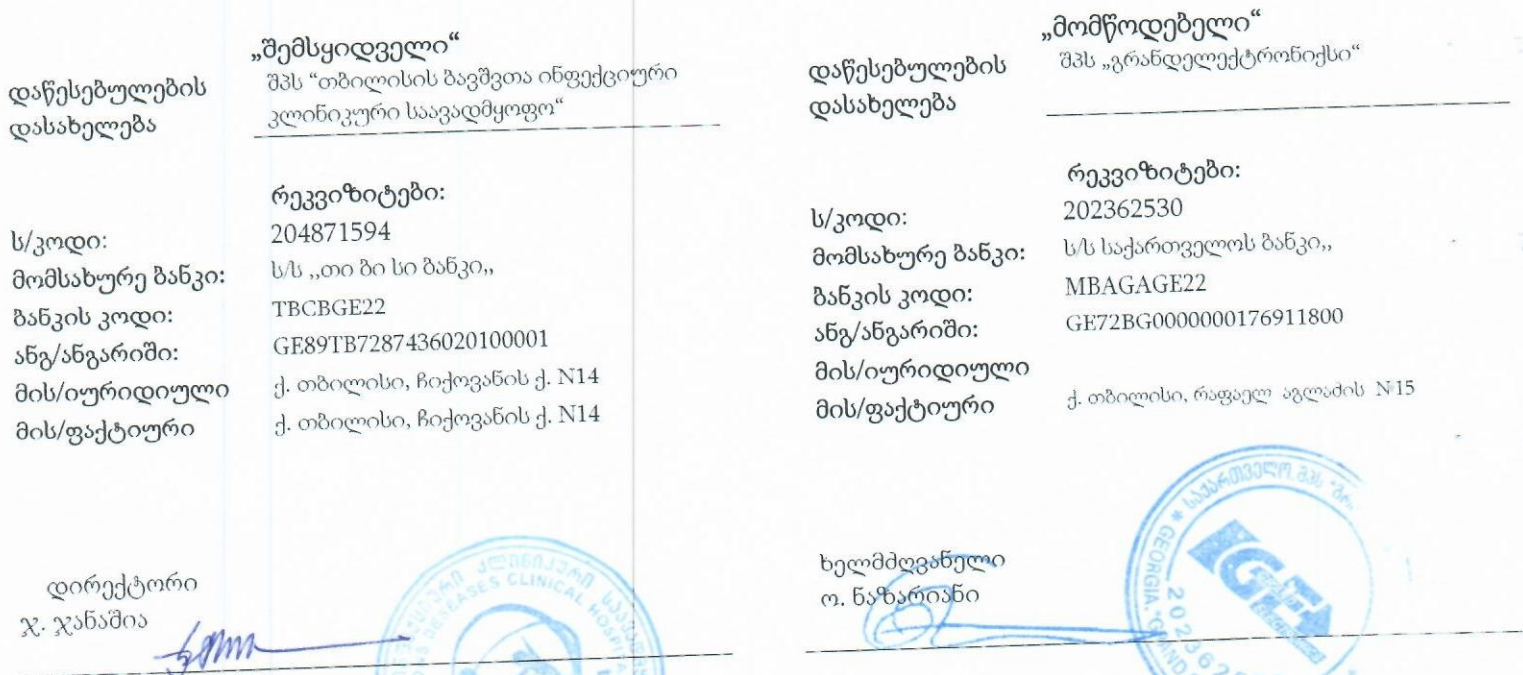 „შემსყიდველი“
დაწესებულების
დასახელება
შპს “თბილისის ბავშვთა ინფექციური
კლინიკური საავადმყოფო“
რეკვიზიტები:
ს/კოდი: 204871594
მომსახურე ბანკი: ს/ს ,,თი ბი სი ბანკი,,
ბანკის კოდი: TBCBGE22
ანგ/ანგარიში: GE89TB7287436020100001
მის/იურიდიული ქ. თბილისი, ჩიქოვანის ქ. N14
მის/ფაქტიური ქ. თბილისი, ჩიქოვანის ქ. N14
დირექტორი
ჯ. ჯანაშია
კლინიკური
DISEASES CLINICAL HOSPITAL
„მომწოდებელი“
დაწესებულების
დასახელება
შპს „გრანდელექტრონიქსი“
რეკვიზიტები:
ს/კოდი: 202362530
მომსახურე ბანკი: ს/ს საქართველოს ბანკი,,
ბანკის კოდი: MBAGAGE22
ანგ/ანგარიში: GE72BG0000000176911800
მის/იურიდიული
მის/ფაქტიური ქ. თბილისი, რაფაელ აგლაძის N15
ხელმძღვანელი
ო. ნაზარიანი
საქართველო. შპს
GEORGIA.
GE